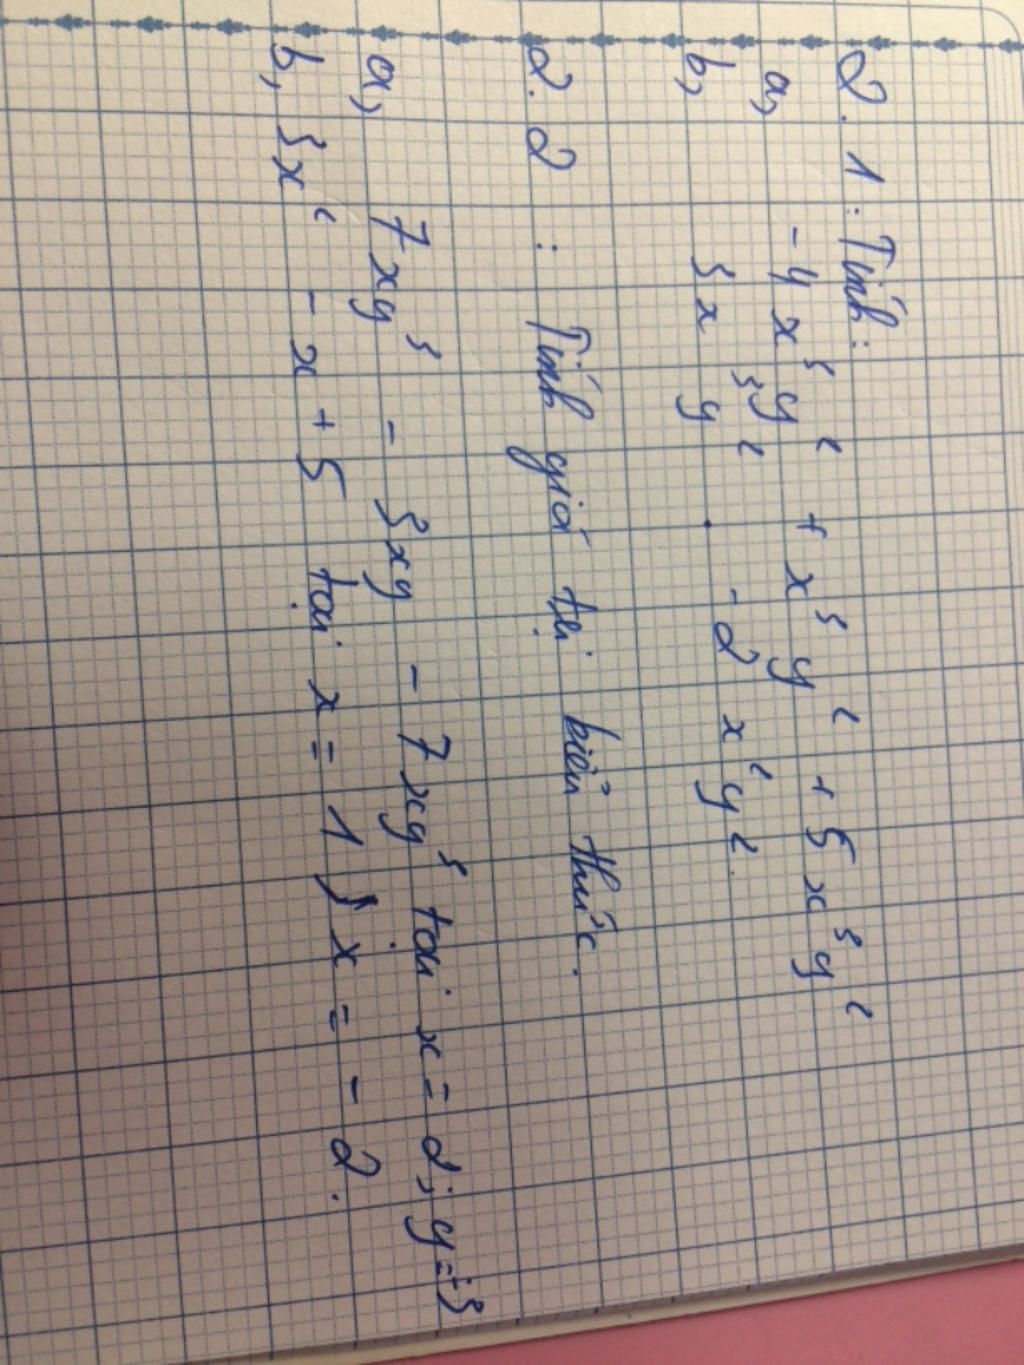 2.1: Tính:
a, -4x³y² + x³y² + 5x³y²
b, 3x³y² . -2x²y²
2.2: Tính giá trị biểu thức.
a, 7xy³ - 3xy - 7xy³ tại x = 2; y = -3
b, 3x² - x + 5 tại x = 1; x = -2.